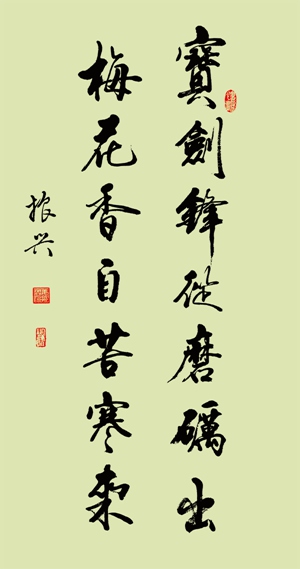 寶劍鋒從磨礪出
梅花香自苦寒來
振兴